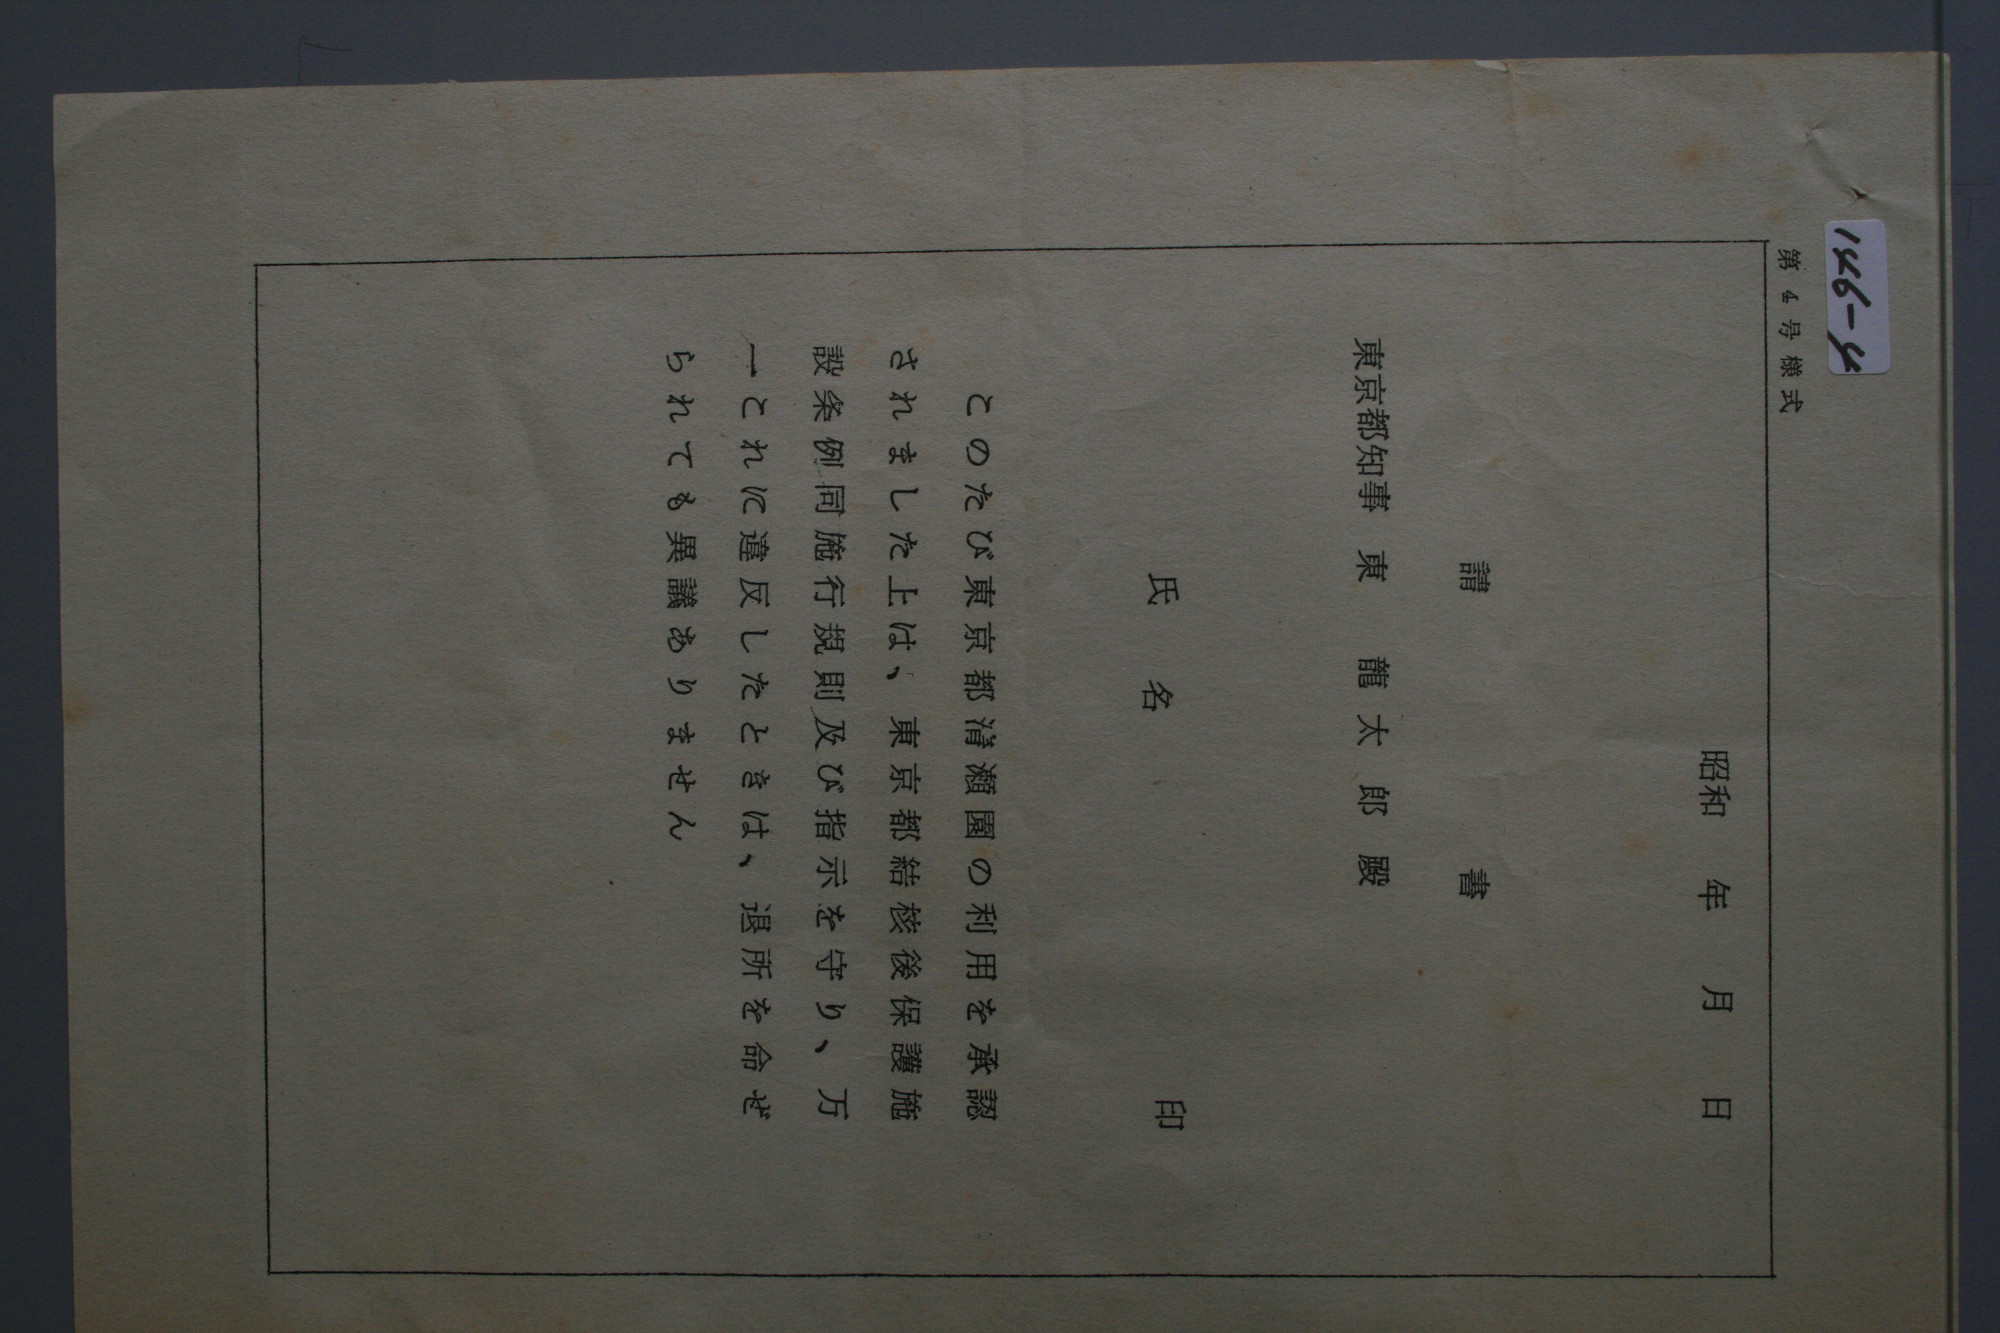 146-4
第4号様式
昭和　年　月　日
請　書
東京都知事　東　龍太郎　殿
氏　名　　　印
このたび東京都清瀬園の利用を承認
されました上は、東京都結核後保護施
設条例同施行規則及び指示を守り、万
一これに違反したときは、退所を命ぜ
られても異議ありません